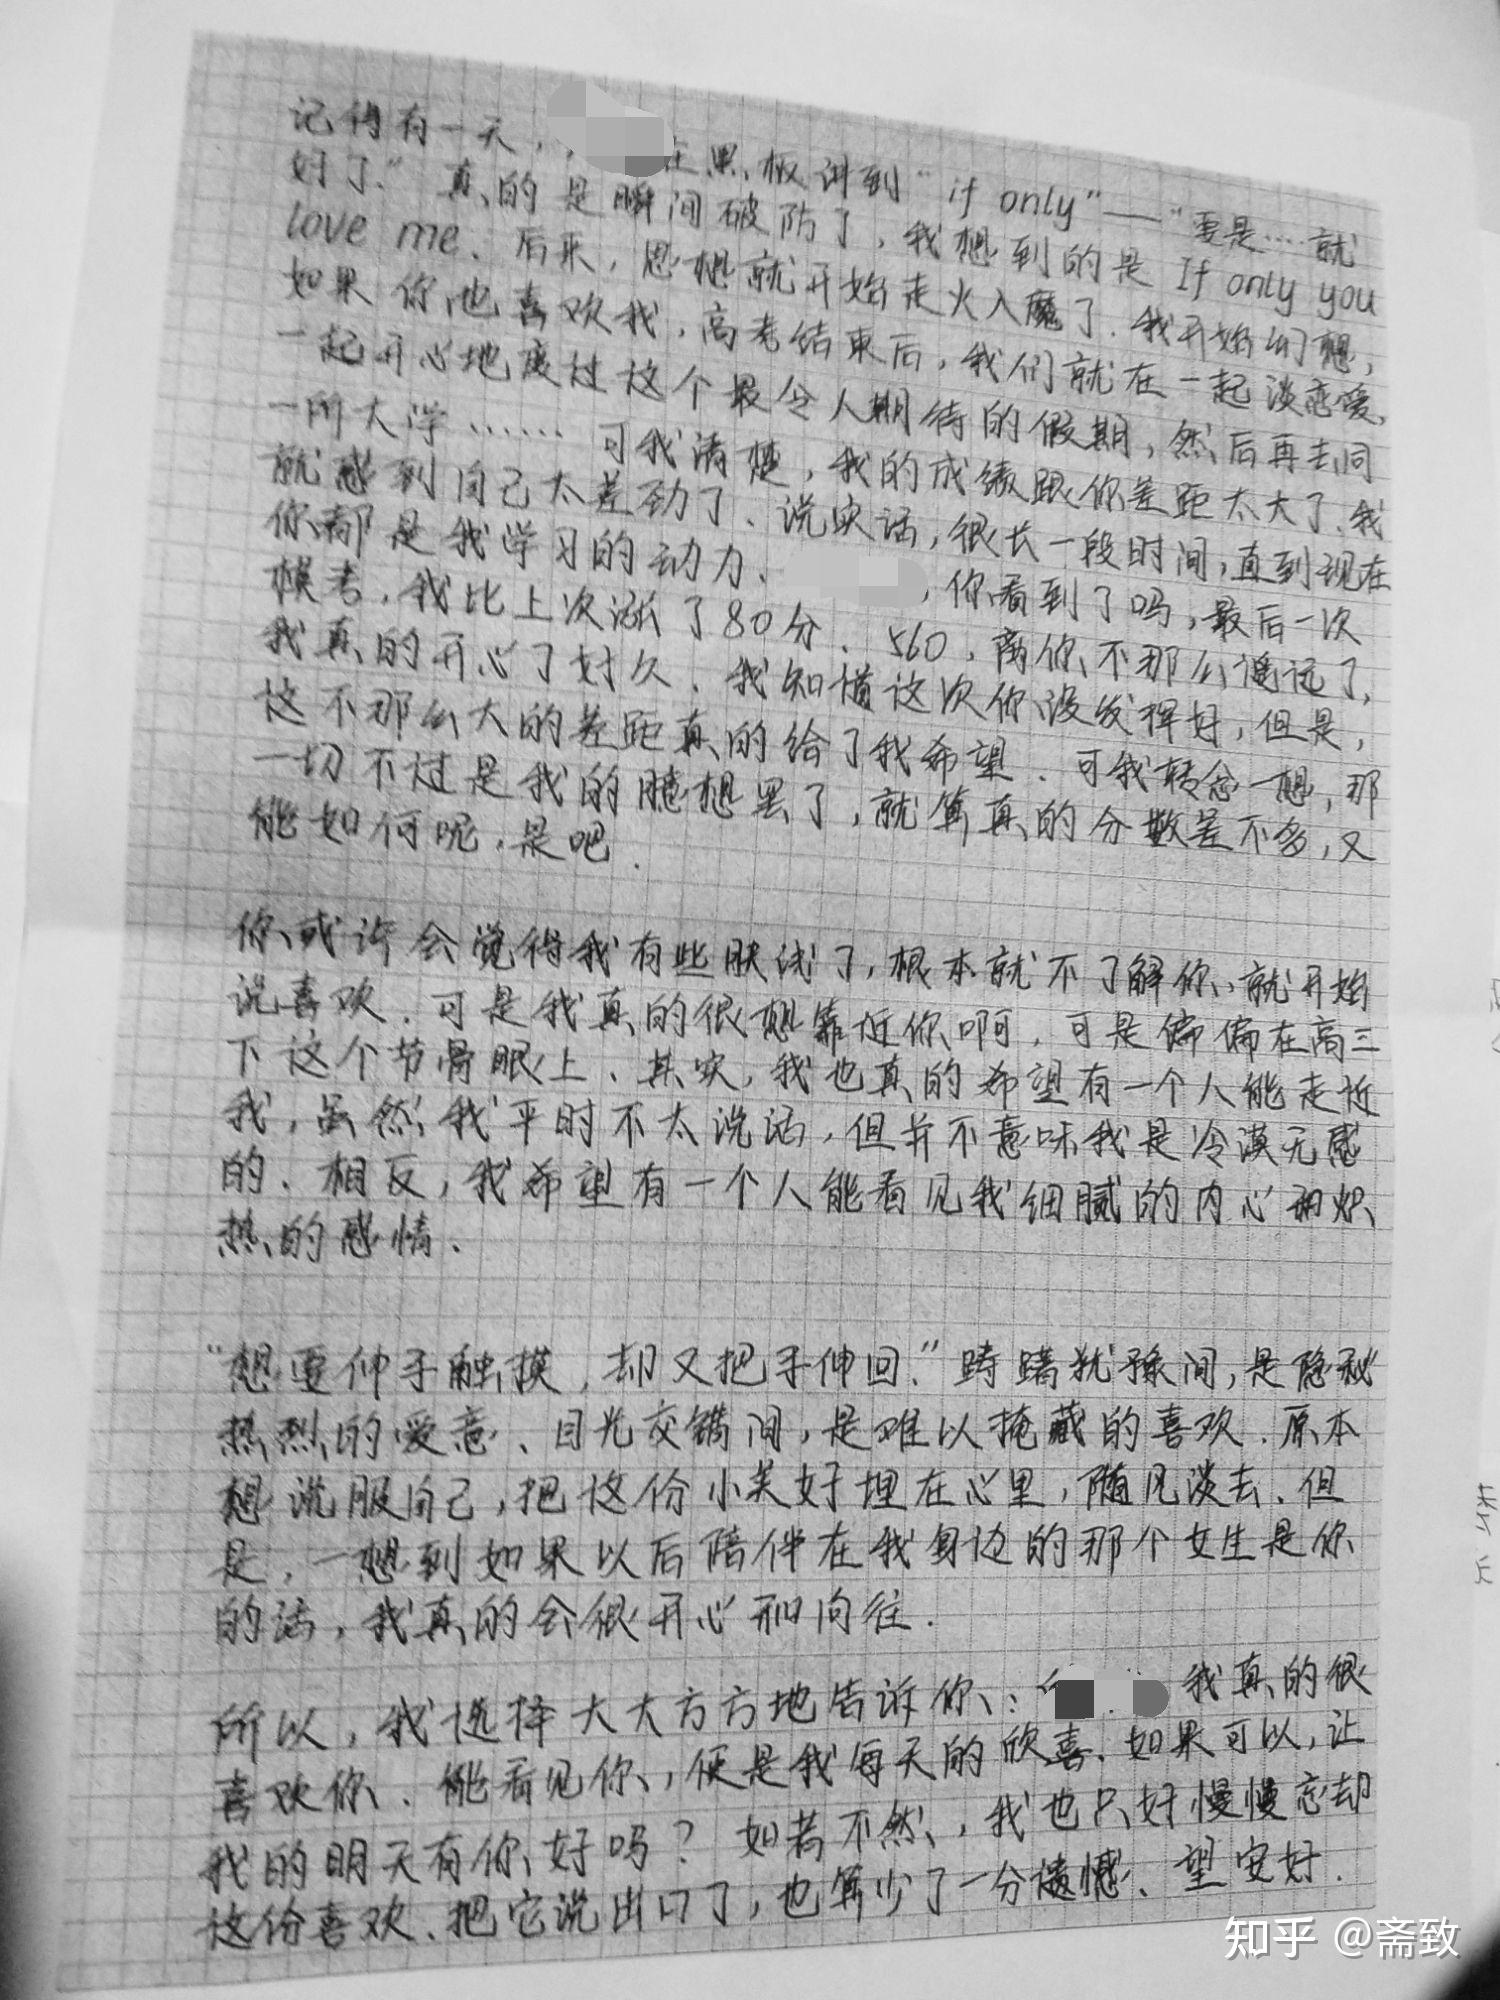 记得有一天，在黑板讲到“if only”——“要是……就
好了.”真的是瞬间破防了，我想到的是 If only you
love me. 后来，思想就开始走火入魔了. 我开始幻想，
如果你也喜欢我，高考结束后，我们就在一起谈恋爱、
一起开心地度过这个最令人期待的假期，然后再去同
一所大学…… 可我清楚，我的成绩跟你差距太大了. 我
就感到自己太差劲了. 说实话，很长一段时间，直到现在
你都是我学习的动力. ，你看到了吗，最后一次
模考，我比上次涨了80分. 560，离你不那么遥远了，
我真的开心了好久. 我知道这次你没发挥好，但是，
这不那么大的差距真的给了我希望. 可我转念一想，那
一切不过是我的臆想罢了，就算真的分数差不多，又
能如何呢，是吧.
你或许会觉得我有些肤浅了，根本就不了解你、就开始
说喜欢. 可是我真的很想靠近你啊. 可是偏偏在高三
下这个节骨眼上. 其实，我也真的希望有一个人能走近
我，虽然我平时不太说话，但并不意味我是冷漠无感
的. 相反，我希望有一个人能看见我细腻的内心和炽
热的感情.
“想要伸手触摸，却又把手伸回.”踌躇犹豫间，是隐秘
热烈的爱意. 目光交错间，是难以掩藏的喜欢. 原本
想说服自己，把这份小美好埋在心里，随风淡去. 但
是，一想到如果以后陪伴在我身边的那个女生是你
的话，我真的会很开心和向往.
所以，我选择大大方方地告诉你：我真的很
喜欢你. 能看见你，便是我每天的欣喜. 如果可以，让
我的明天有你好吗？如若不然，我也只好慢慢忘却
这份喜欢. 把它说出口了，也算少了一分遗憾. 望安好.
知乎 @斋致